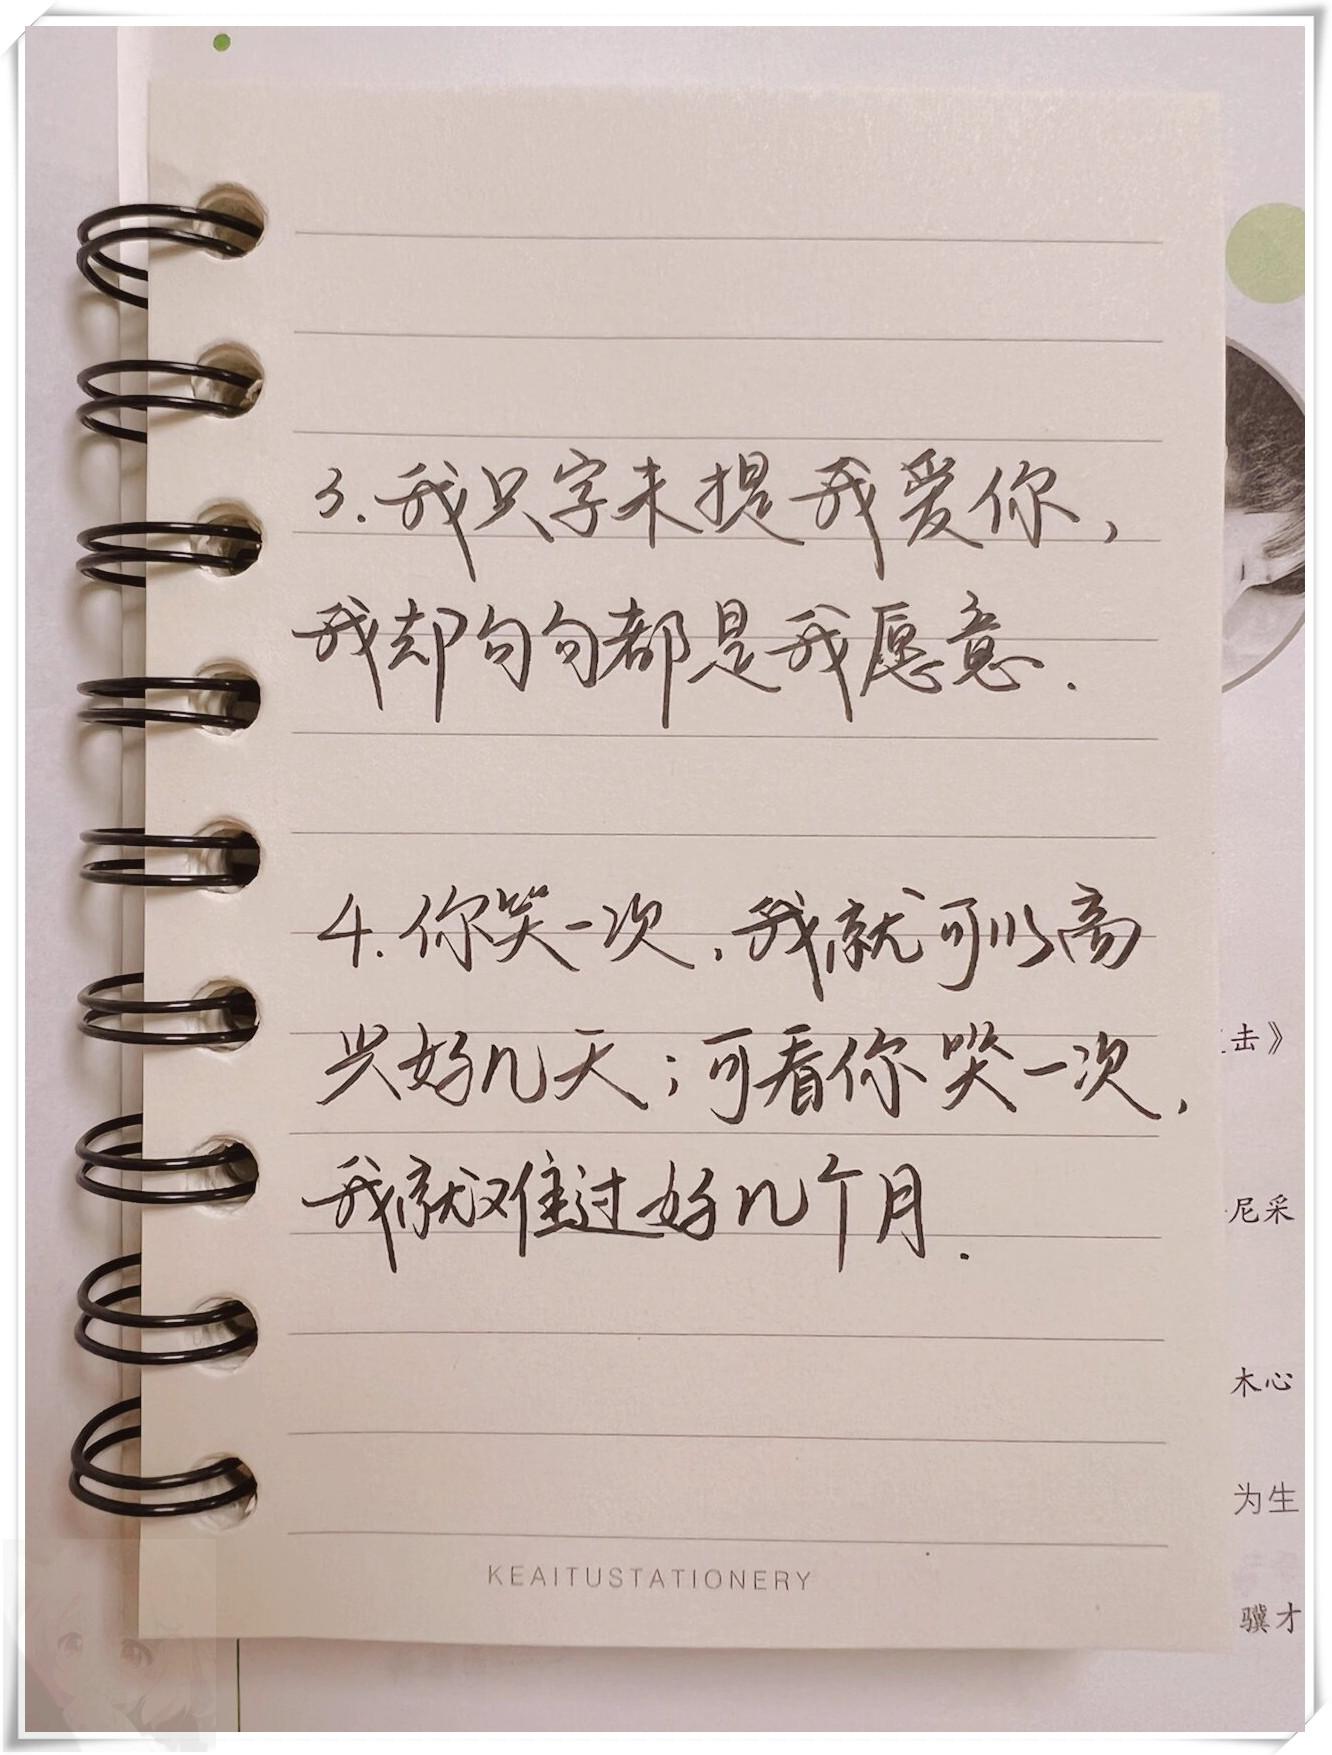 3.我只字未提我爱你,
我却句句都是我愿意.
4.你笑一次,我就可以高
兴好几天;可看你哭一次,
我就难过好几个月.
KEAITUSTATIONERY
击》
尼采
木心
为生
骥才